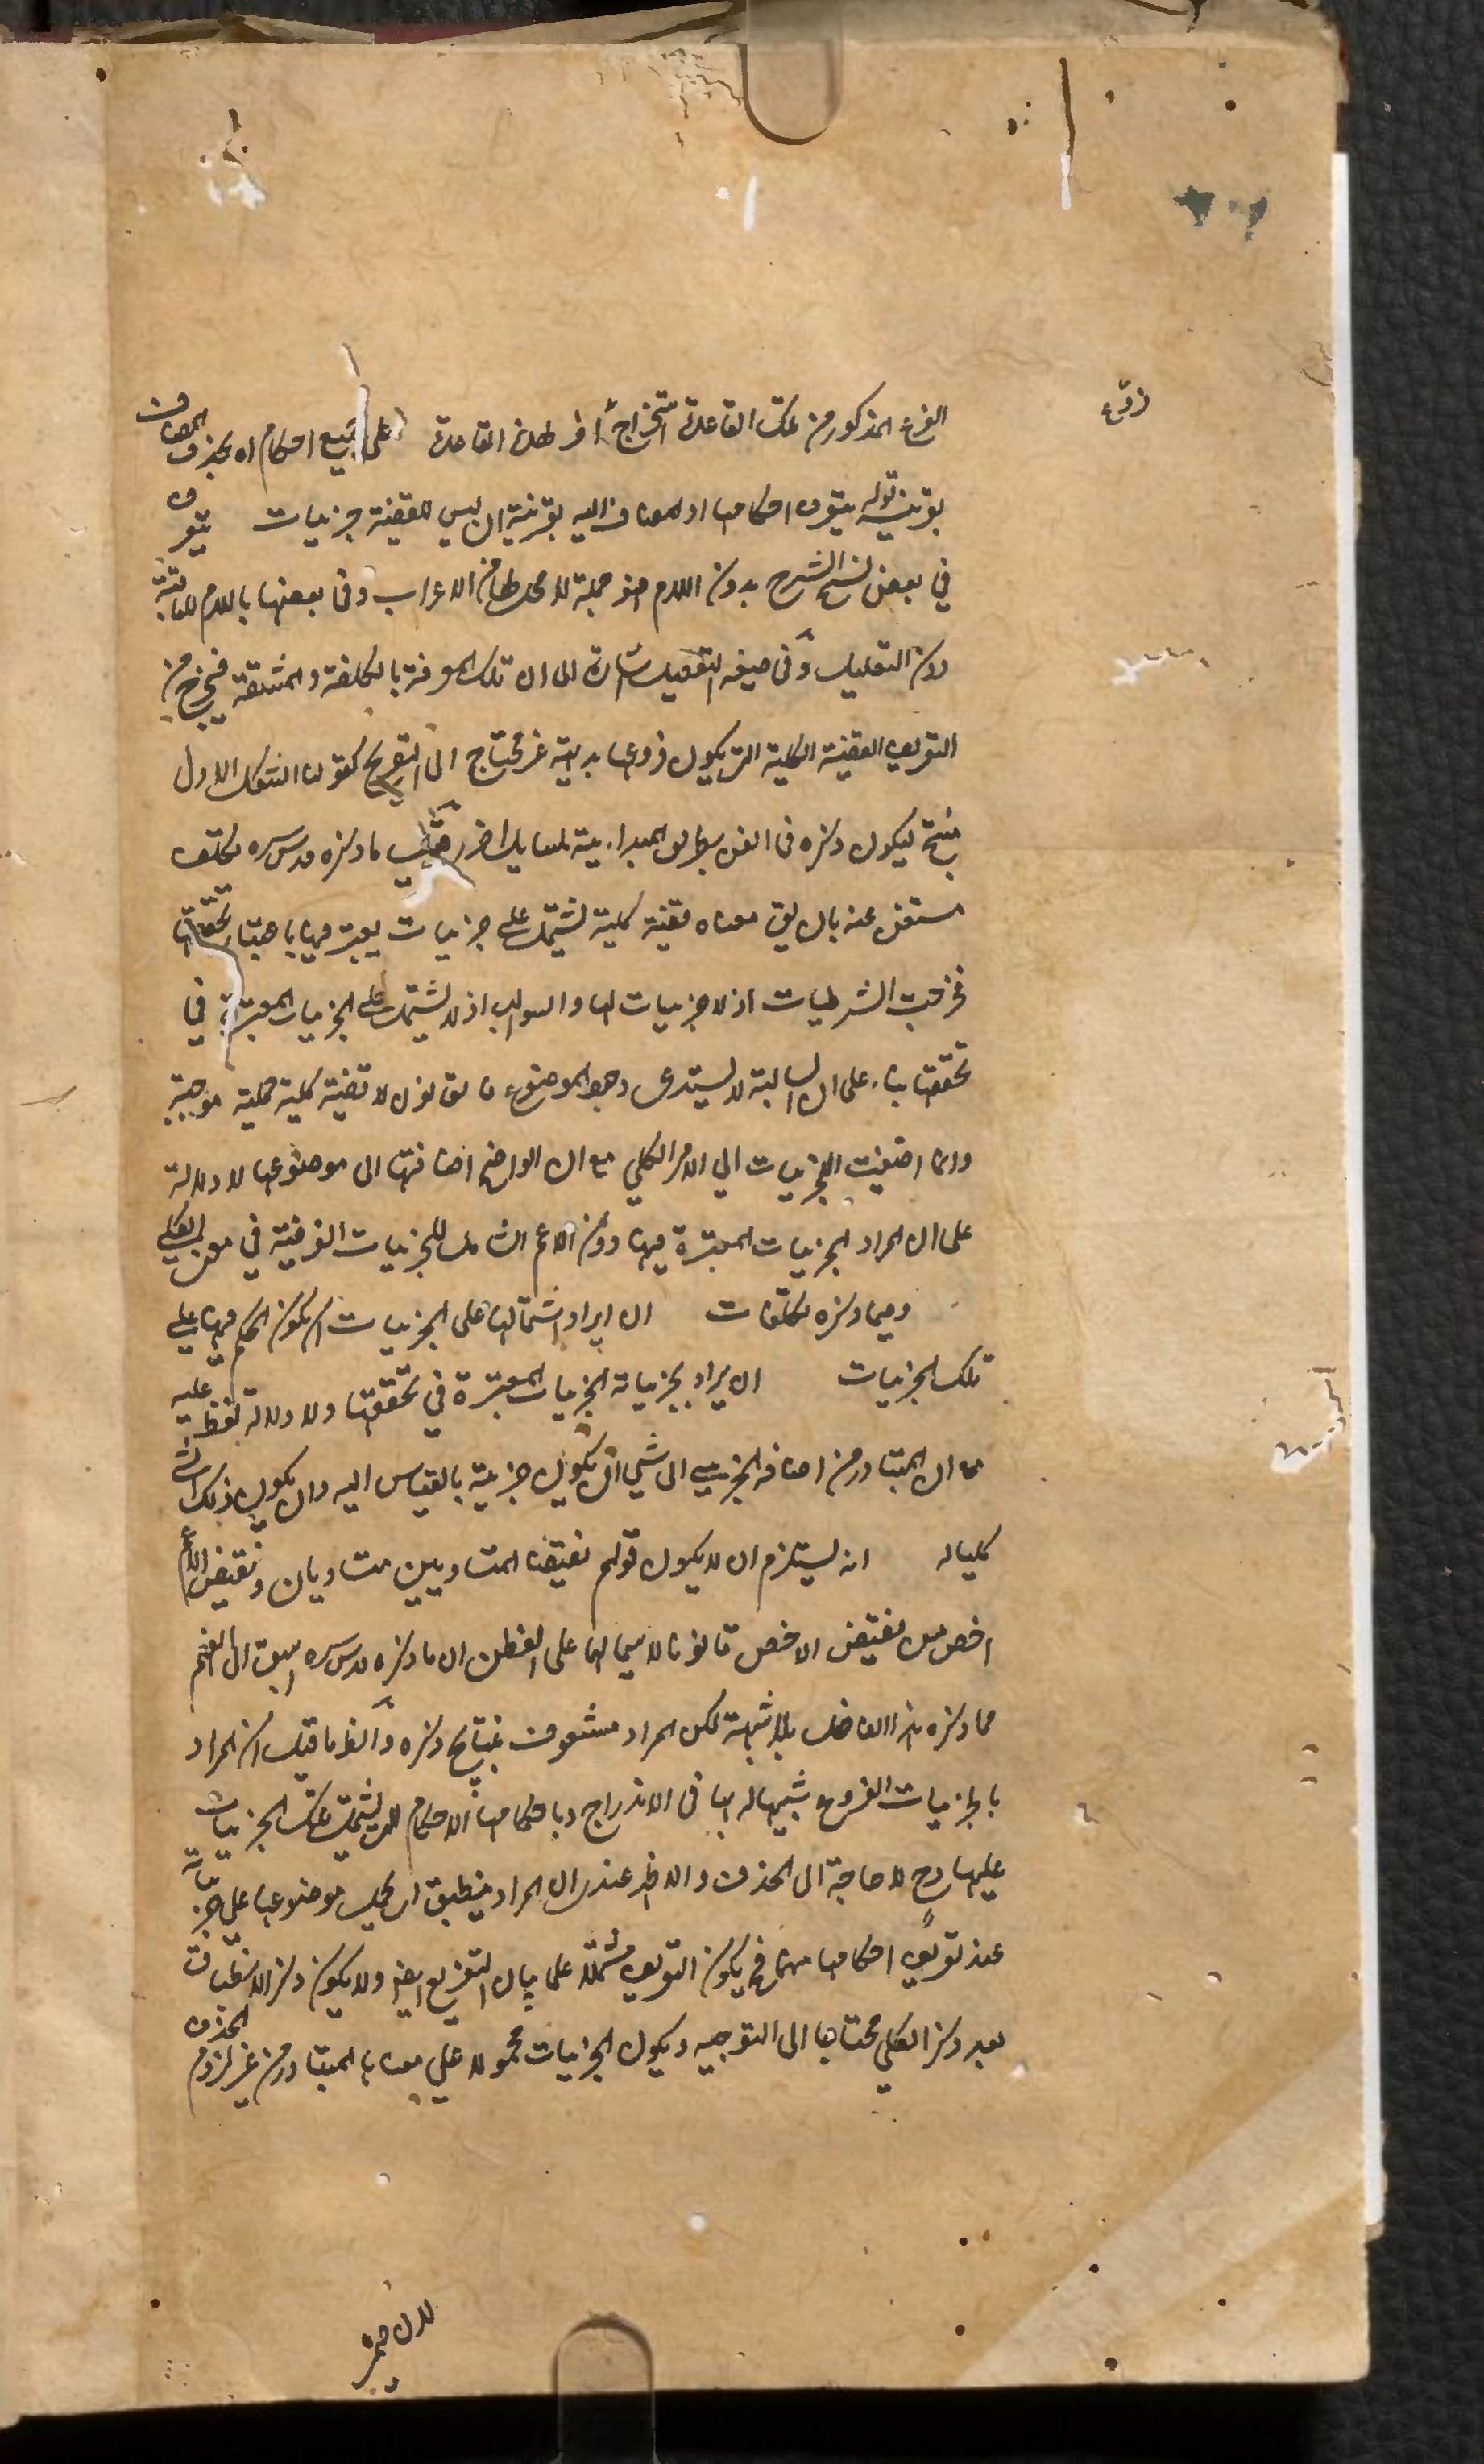 فرع
الفرع المذكور من تلك القاعدة استخراجا اخر لهذه القاعدة على جميع احكام اه بحذف المضاف
بقرينة قوله يتعرف احكامها او المضاف اليه بقرينة ان ليس للقضية جزئيات يتعرف
في بعض نسخ الشرح بدون اللام فهو جملة لا محل لها من الاعراب وفي بعضها باللام للغاية
دون التعليل وفي صيغة التفعيل اشارة الى ان تلك المعرفة بالكلفة والمشقة فيخرج من
التعريف القضية الكلية التي يكون فروعها بديهية غير محتاج الى التفريع كقولنا الشكل الاول
منتج فيكون ذكره في الفن بطريق المبدائية لمسايل اخر ما ذكره قدس سره تكلف
مستغنى عنه بان يق معناه قضية كلية تشتمل على جزئيات يعتبر فيها باعتبار تحققها
فخرجت الشرطيات اذ لا جزئيات لها والسوالب اذ لا تشتمل على الجزئيات المعتبرة في
تحققها بناء على ان السالبة لا يستدعى وجود الموضوع فالقانون لا قضية كلية حملية موجبة
وانما اضيفت الجزئيات الى الامر الكلي مع ان الواضح اضافتها الى موضوعها للدلالة
على ان المراد الجزئيات المعتبرة فيها دون الاعم الشامل للجزئيات الفرضية في بعض الكلي
وفيما ذكره تكلفات ان ايراد اشتمالها على الجزئيات ان يكون الحكم فيها على
تلك الجزئيات ان يراد بجزئياته الجزئيات المعتبرة في تحققها ولا دلالة للفظ عليه
مع ان المتبادر من اضافة الجزئي الى شيء ان يكون جزئية بالقياس اليه وان يكون ذلك الشيء
كليا له انه يستلزم ان لا يكون قولهم نقيضا المتساويين متساويان ونقيض الاعم
اخص من نقيض الاخص قانونا لا سيما لها على الفطن ان ما ذكره قدس سره اسبق الى الفهم
مما ذكره هذا الفاضل بلا شبهة لكن المراد مشعوف ذكره وانظر ما قيل ان المراد
بالجزئيات الفروع شبيها له بها في الاندراج وباحكامها الاحكام التي يشتمل تلك الجزئيات
عليها وح لا حاجة الى الحذف والاظهر عندي ان المراد ينطبق ان يحمل موضوعها على جزئياته
عند تعرف احكامها منها فح يكون التعريف مشتملا على بيان التفريع ايضا ولا يكون ذكر الانطباق
بعد ذكر الكلي محتاجا الى التوجيه ويكون الجزئيات محمولا على معناها المتبادر من غير لزوم الحذف